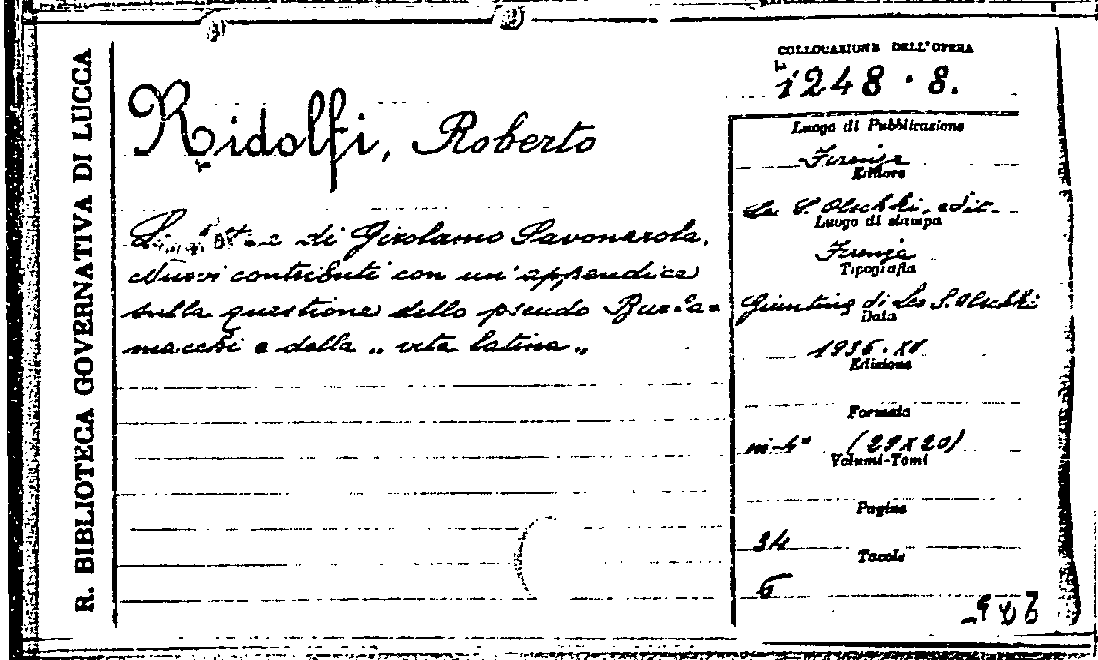 R. BIBLIOTECA GOVERNATIVA DI LUCCA
Ridolfi, Roberto
di Girolamo Savonarola.
Nuovi contributi con un'appendice
sulla questione dello pseudo Burla=
macchi e della „ vita latina „
COLLOCAZIONE DELL'OPERA
1248.8.
Luogo di Pubblicazione
Firenze
Editore
Leo S. Olschki, edit.
Luogo di stampa
Firenze
Tipografia
Giuntina di Leo S. Olschki
Data
Edizione
Formato
in-4° (29x20)
Volumi-Tomi
Pagine
34
Tavole
6